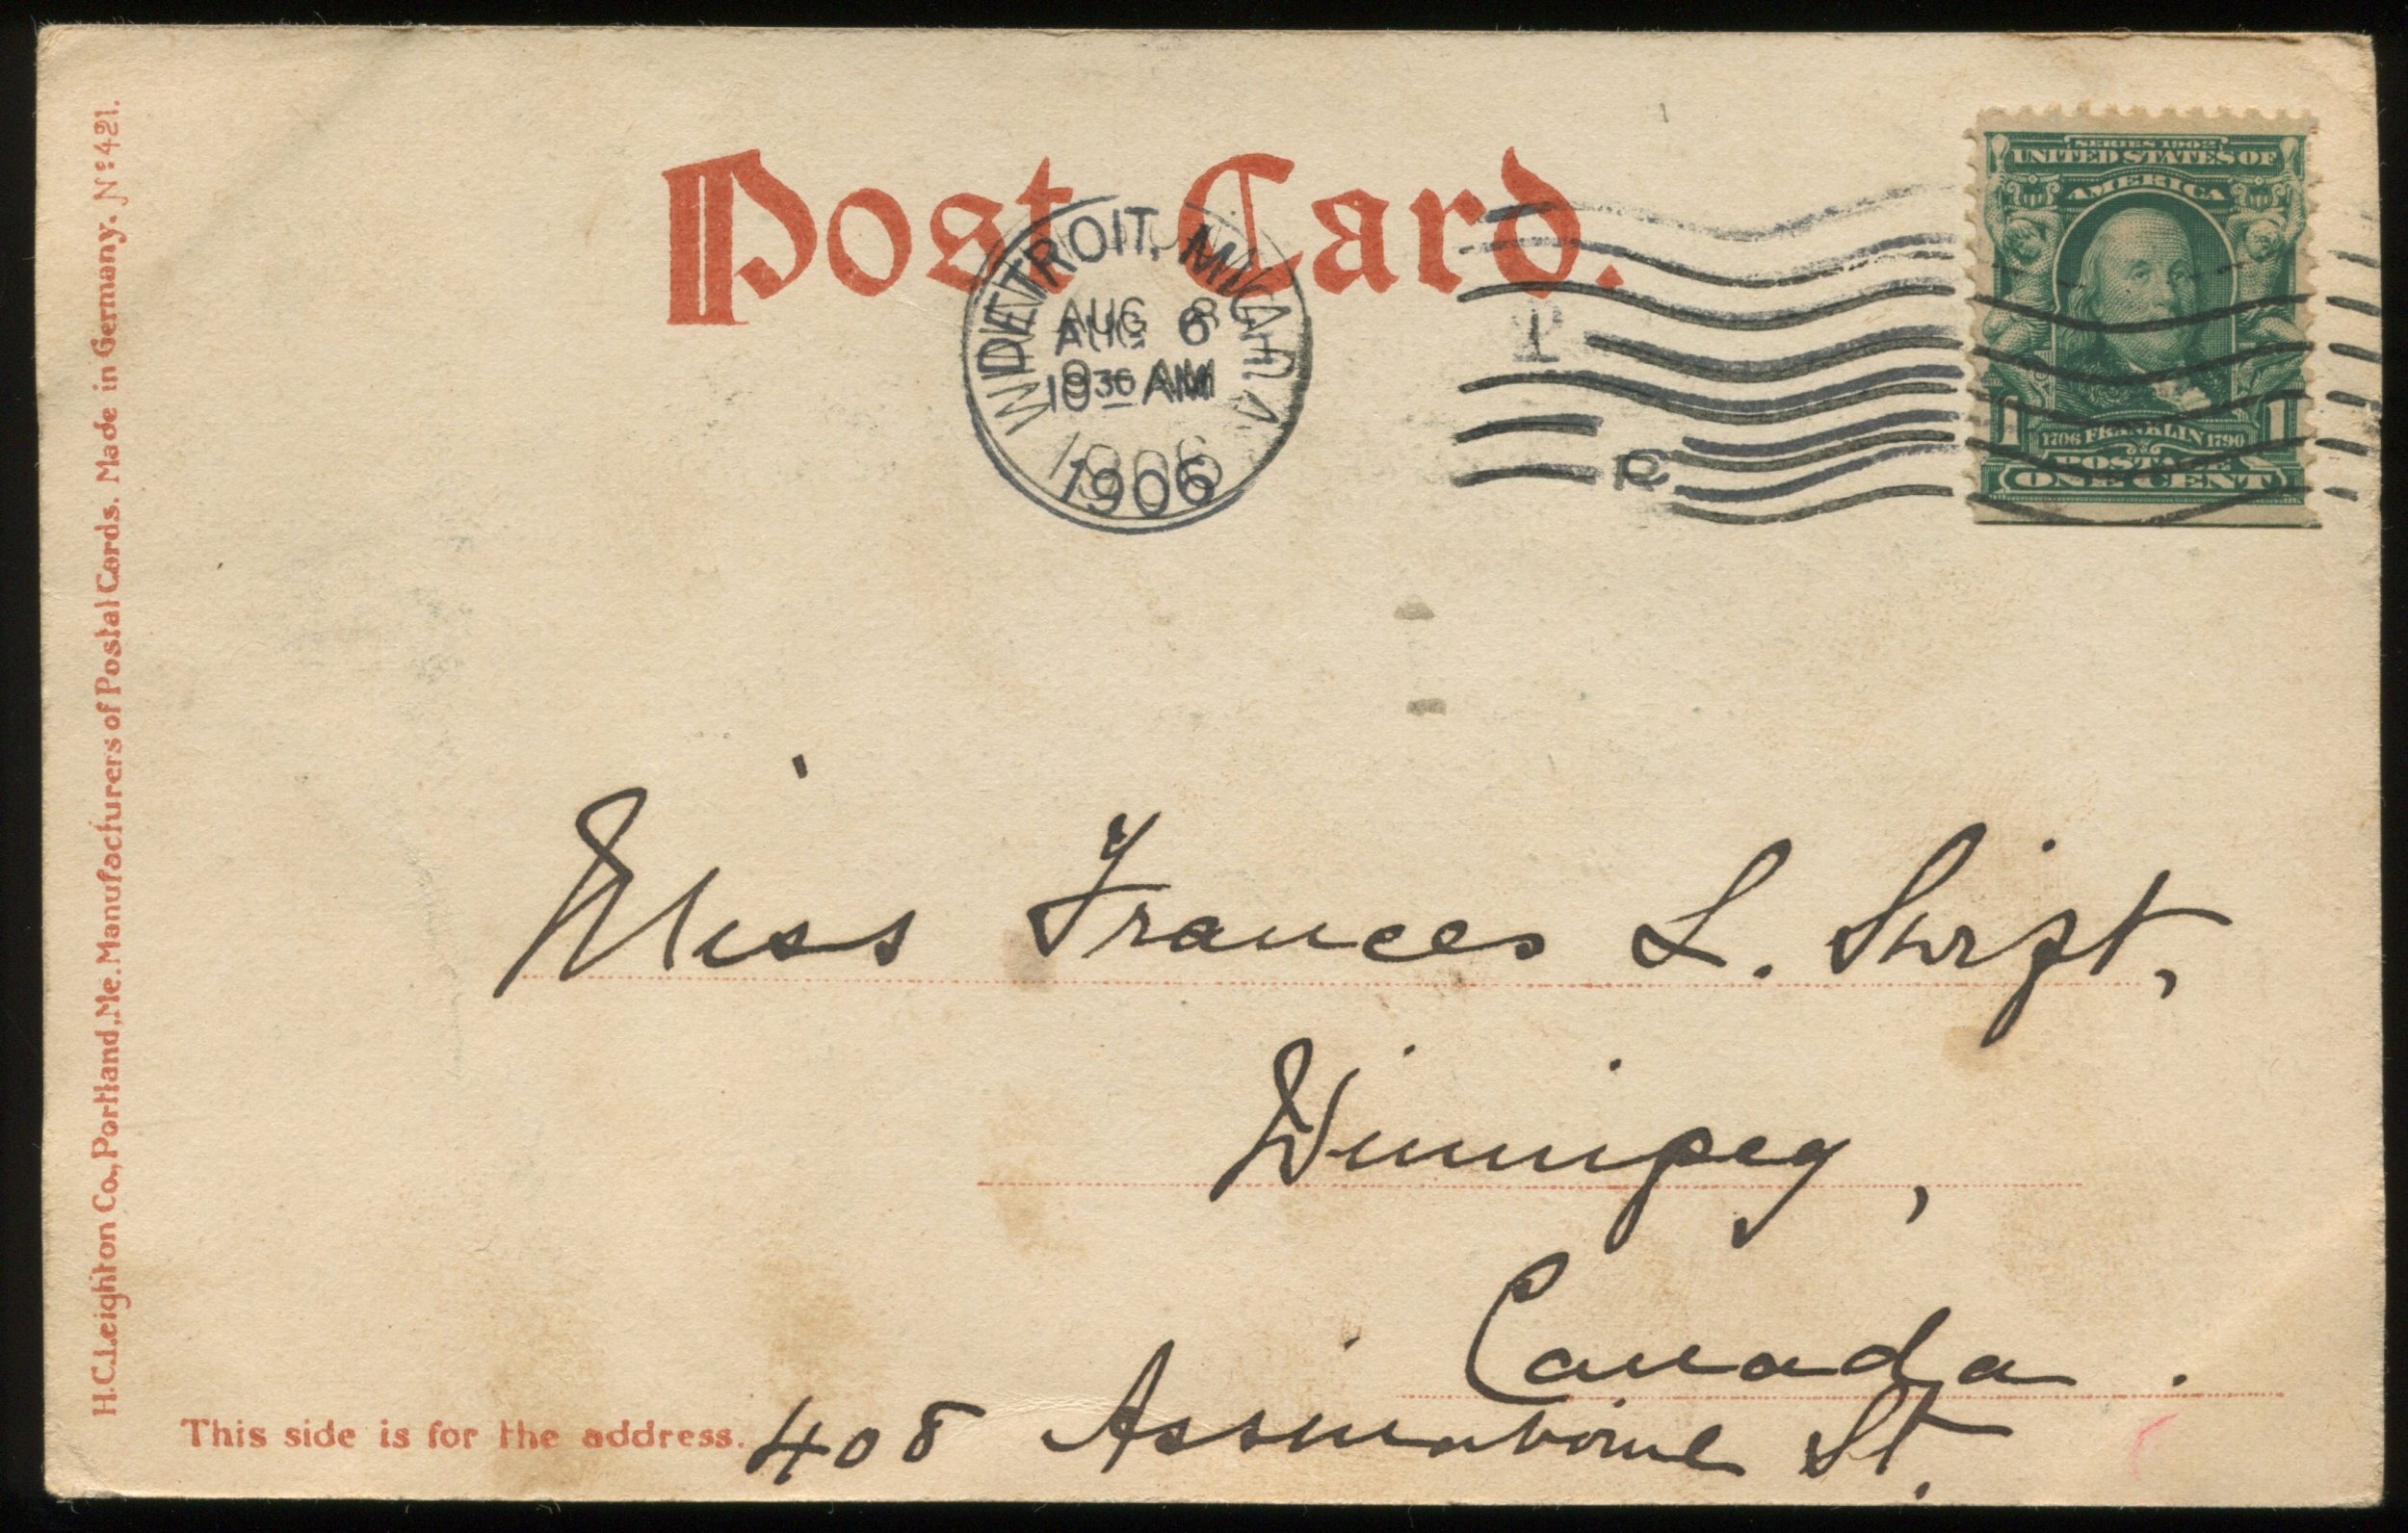 Post Card.
H.C. Leighton Co., Portland, Me. Manufacturers of Postal Cards. Made in Germany. No 421.
DETROIT, MICH.
AUG 6
1030 AM
1906
AUG 8
1906
SERIES 1902
UNITED STATES OF
AMERICA
1 1
1706 FRANKLIN 1790
POSTAGE
ONE CENT
Miss Frances L. Swift,
Winnipeg,
Canada.
This side is for the address.
408 Assinaboine St.